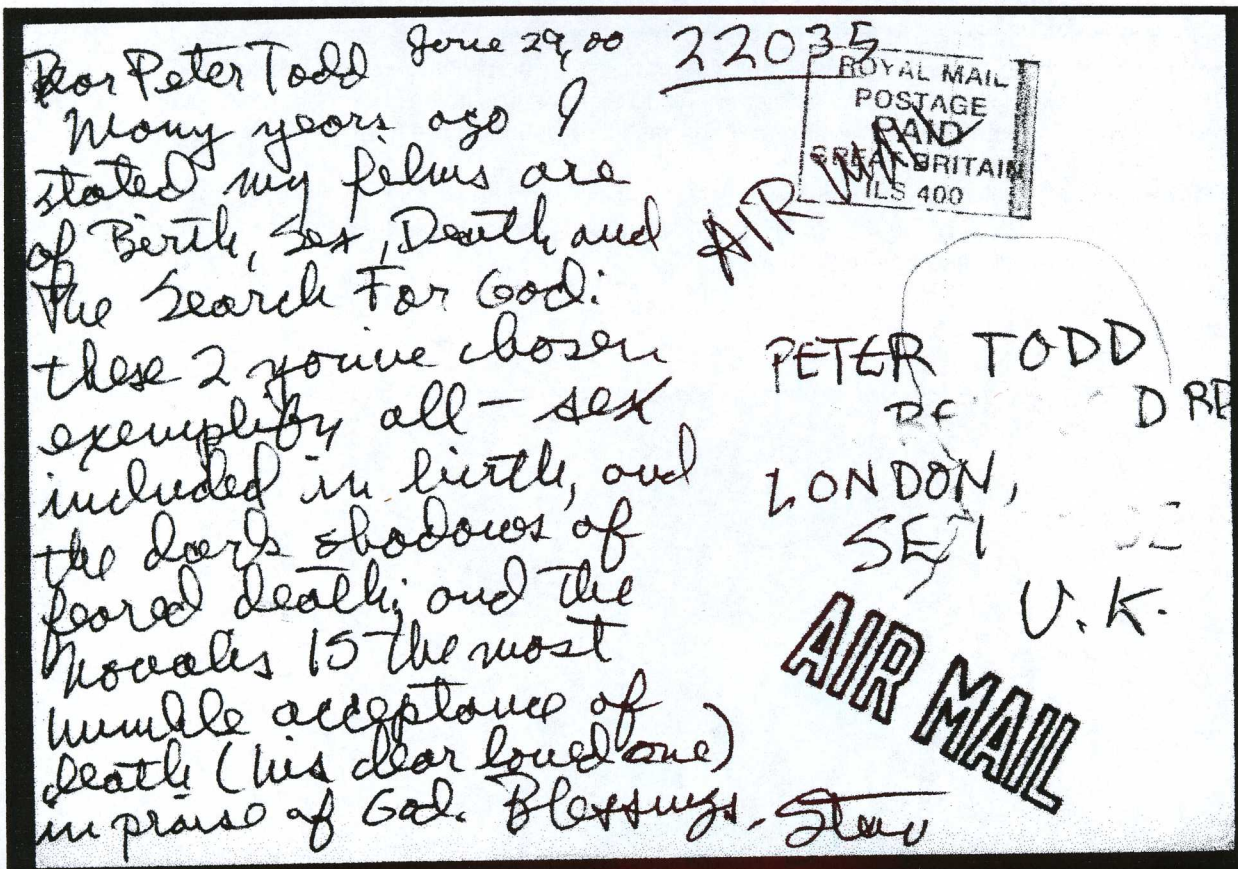 Dear Peter Todd June 29,00
Many years ago I
stated my films are
of Birth, Sex, Death and
The Search For God:
these 2 you've chosen
exemplify all — sex
included in birth, and
the dark shadows of
feared death; and the
Novalis IS the most
humble acceptance of
death (his dear loved one)
in praise of God. Blessings, Stan
22035
ROYAL MAIL
POSTAGE
PAID
GREAT BRITAIN
ILS 400
AIR MAIL
PETER TODD
D RD
LONDON,
SE1
U.K.
AIR MAIL